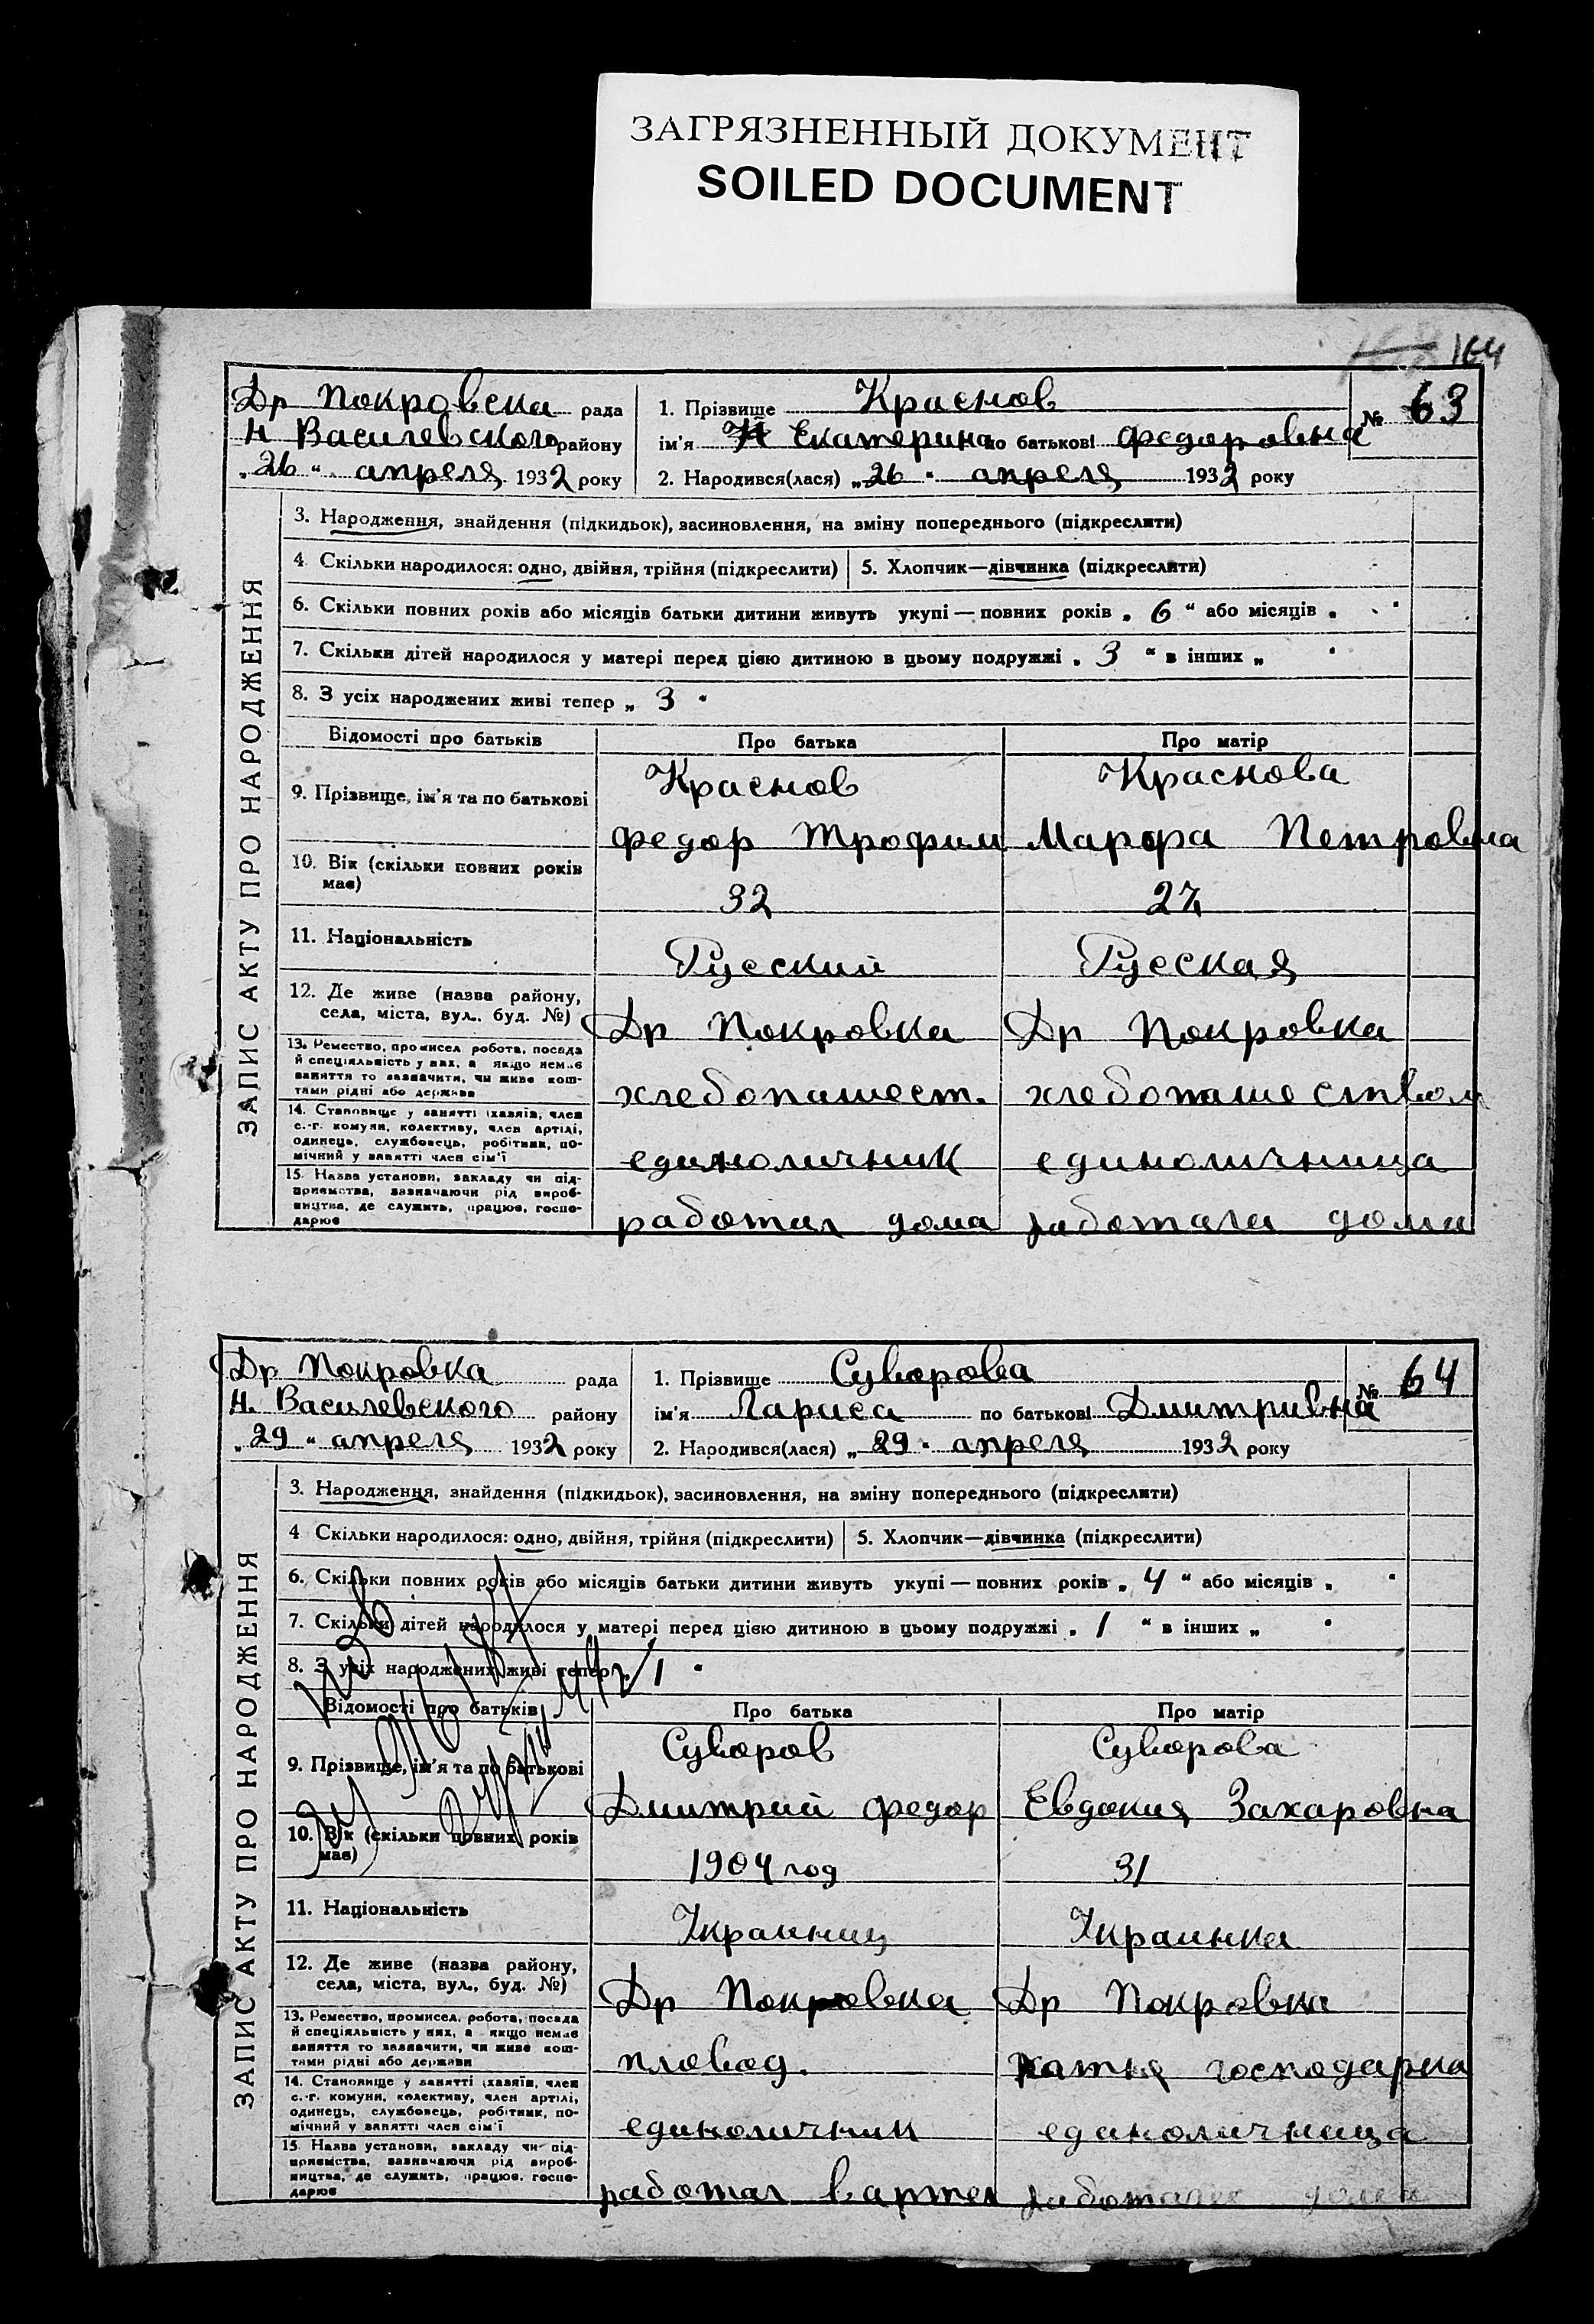 ЗАГРЯЗНЕННЫЙ ДОКУМЕНТ
SOILED DOCUMENT
164
Др Покровска рада
Н Василевского району
„26“ апреля 1932 року
1. Прізвище Краснов
ім'я Екатерина по батькові Федоровна
2. Народився(лася) „26“ апреля 1932 року
№ 63
ЗАПИС АКТУ ПРО НАРОДЖЕННЯ
3. Народження, знайдення (підкидьок), засиновлення, на зміну попереднього (підкреслити)
4 Скільки народилося: одно, двійня, трійня (підкреслити) 5. Хлопчик—дівчинка (підкреслити)
6. Скільки повних років або місяців батьки дитини живуть укупі — повних років „ 6 “ або місяців „ “
7. Скільки дітей народилося у матері перед цією дитиною в цьому подружжі „ 3 “ в інших „ “
8. З усіх народжених живі тепер „ 3 “
Відомості про батьків Про батька Про матір
9. Прізвище, ім'я та по батькові
Краснов Краснова
Федор Трофим Марфа Петровна
10. Вік (скільки повних років має)
32 27
11. Національність
Руский Руская
12. Де живе (назва району, села, міста, вул., буд. №)
Др Покровка Др Покровка
13. Ремество, промисел робота, посада й спеціяльність у них, а якщо немає заняття то зазначити, чи живе коштами рідні або держави
хлебопашест. хлебопашеством
14. Становище у занятті (хазяїн, член с.-г. комуни, колективу, член артілі, одинець, службовець, робітник, помічний у занятті член сім'ї
единоличник единоличница
15. Назва установи, закладу чи підприємства, зазначаючи рід виробництва, де служить, працює, господарює
работал дома работала дома
Др Покровка рада
Н. Василевского району
„29“ апреля 1932 року
1. Прізвище Суворова
ім'я Лариса по батькові Дмитривна
2. Народився(лася) „29“ апреля 1932 року
№ 64
ЗАПИС АКТУ ПРО НАРОДЖЕННЯ
3. Народження, знайдення (підкидьок), засиновлення, на зміну попереднього (підкреслити)
4 Скільки народилося: одно, двійня, трійня (підкреслити) 5. Хлопчик—дівчинка (підкреслити)
6. Скільки повних років або місяців батьки дитини живуть укупі — повних років „ 4 “ або місяців „ “
7. Скільки дітей народилося у матері перед цією дитиною в цьому подружжі „ 1 “ в інших „ “
8. З усіх народжених живі тепер „ 1 “
Відомості про батьків Про батька Про матір
9. Прізвище, ім'я та по батькові
Суворов Суворова
Дмитрий Федор Евдокия Захаровна
10. Вік (скільки повних років має)
1904 год 31
11. Національність
Украинец Украинка
12. Де живе (назва району, села, міста, вул., буд. №)
Др Покровка Др Покровка
13. Ремество, промисел, робота, посада й спеціяльність у них, а якщо немає заняття то зазначити, чи живе коштами рідні або держави
пловод. хатня господарка
14. Становище у занятті (хазяїн, член с.-г. комуни, колективу, член артілі, одинець, службовець, робітник, помічний у занятті член сім'ї
единоличник единоличница
15 Назва установи, закладу чи підприємства, зазначаючи рід виробництва, де служить, працює, господарює
работал в артел работала дома